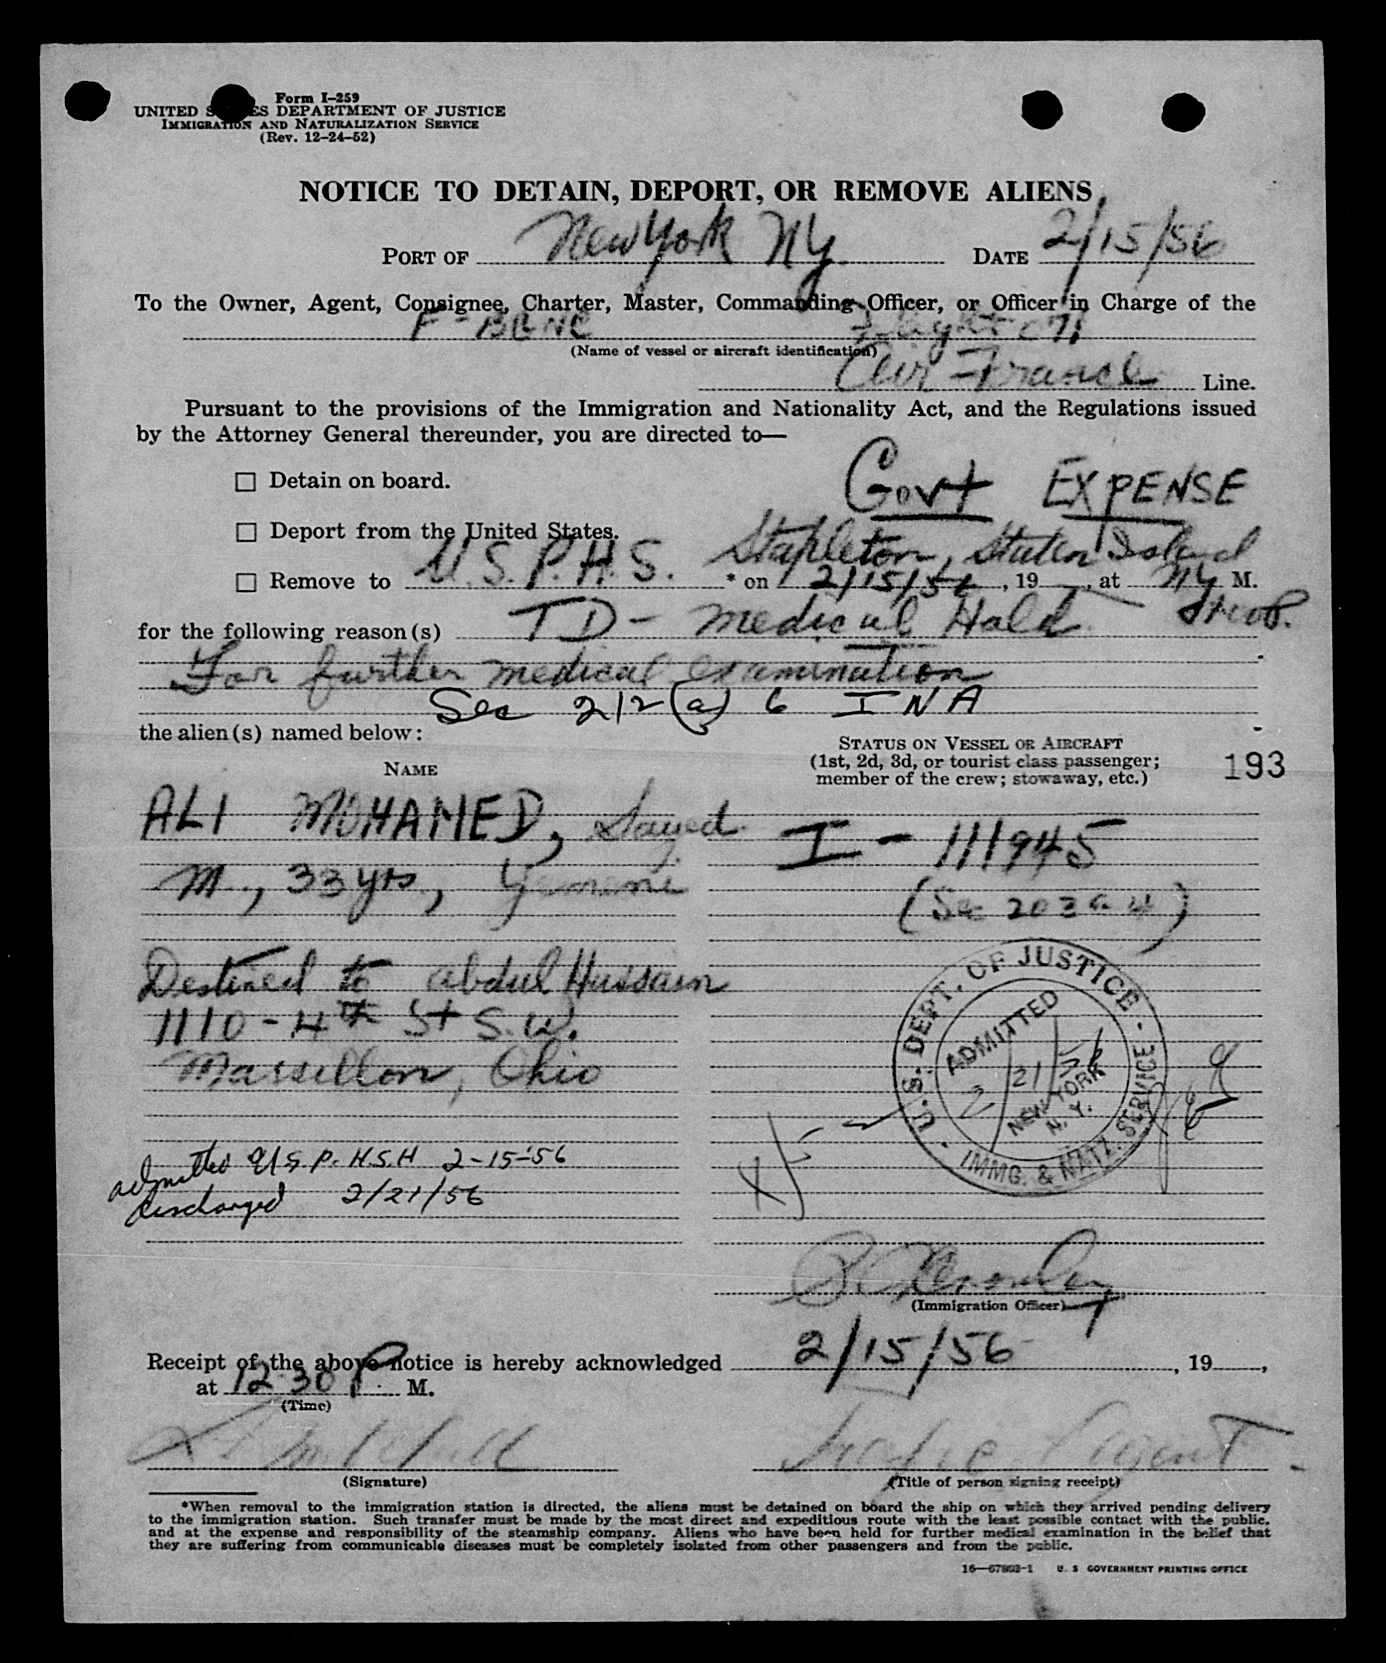 Form I-259
UNITED STATES DEPARTMENT OF JUSTICE
IMMIGRATION AND NATURALIZATION SERVICE
(Rev. 12-24-52)
NOTICE TO DETAIN, DEPORT, OR REMOVE ALIENS
PORT OF New York NY DATE 2/15/56
To the Owner, Agent, Consignee, Charter, Master, Commanding Officer, or Officer in Charge of the
F- Flight 071
(Name of vessel or aircraft identification)
Air-France Line.
Pursuant to the provisions of the Immigration and Nationality Act, and the Regulations issued
by the Attorney General thereunder, you are directed to—
☐ Detain on board.
Govt EXPENSE
☐ Deport from the United States.
Stapleton, Staten Island
☐ Remove to U.S.P.H.S. * on 2/15/56, 19 , at NY M.
for the following reason(s) TD- medical Hold
For further medical examination
Sec 212(a) 6 INA
the alien(s) named below:
NAME
STATUS ON VESSEL OR AIRCRAFT
(1st, 2d, 3d, or tourist class passenger;
member of the crew; stowaway, etc.)
193
ALI MOHAMED, Sayed
I-111945
M., 33 yrs., Yemeni
(Sec 203 a 4)
Destined to Abdul Hussain
1110-4th St S.W.
Massillon, Ohio
U.S. DEPT. OF JUSTICE
ADMITTED
2/21/56
NEW YORK
N. Y.
IMMG. & NATZ. SERVICE
admitted U.S.P.H.S.H 2-15-56
discharged 2/21/56
(Immigration Officer)
Receipt of the above notice is hereby acknowledged 2/15/56, 19 ,
at 12:30 P. M.
(Time)
(Signature)
(Title of person signing receipt)
*When removal to the immigration station is directed, the aliens must be detained on board the ship on which they arrived pending delivery
to the immigration station. Such transfer must be made by the most direct and expeditious route with the least possible contact with the public.
and at the expense and responsibility of the steamship company. Aliens who have been held for further medical examination in the belief that
they are suffering from communicable diseases must be completely isolated from other passengers and from the public.
16—67802-1 U. S GOVERNMENT PRINTING OFFICE